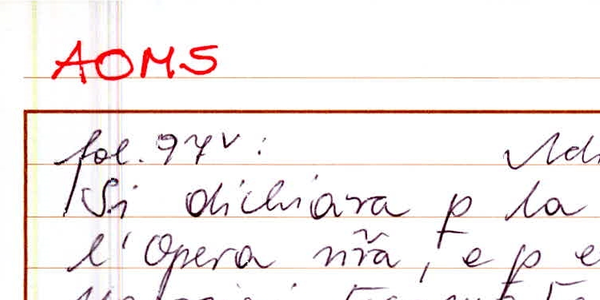 AOMS
fol. 97v:
Si dichiara p la
l'Opera nr̃a, e p e